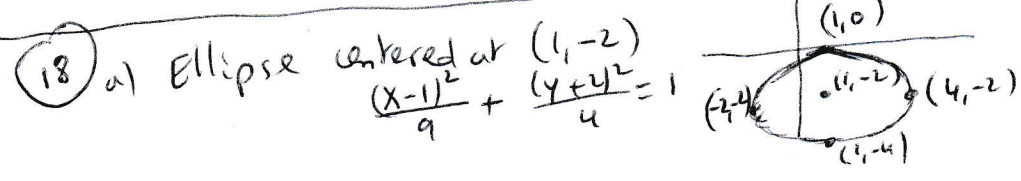 18 a) Ellipse centered at (1,-2)
(x-1)²/9 + (y+2)²/4 = 1
(1,0)
(1,-2)
(-2,-2)
(4,-2)
(1,-4)